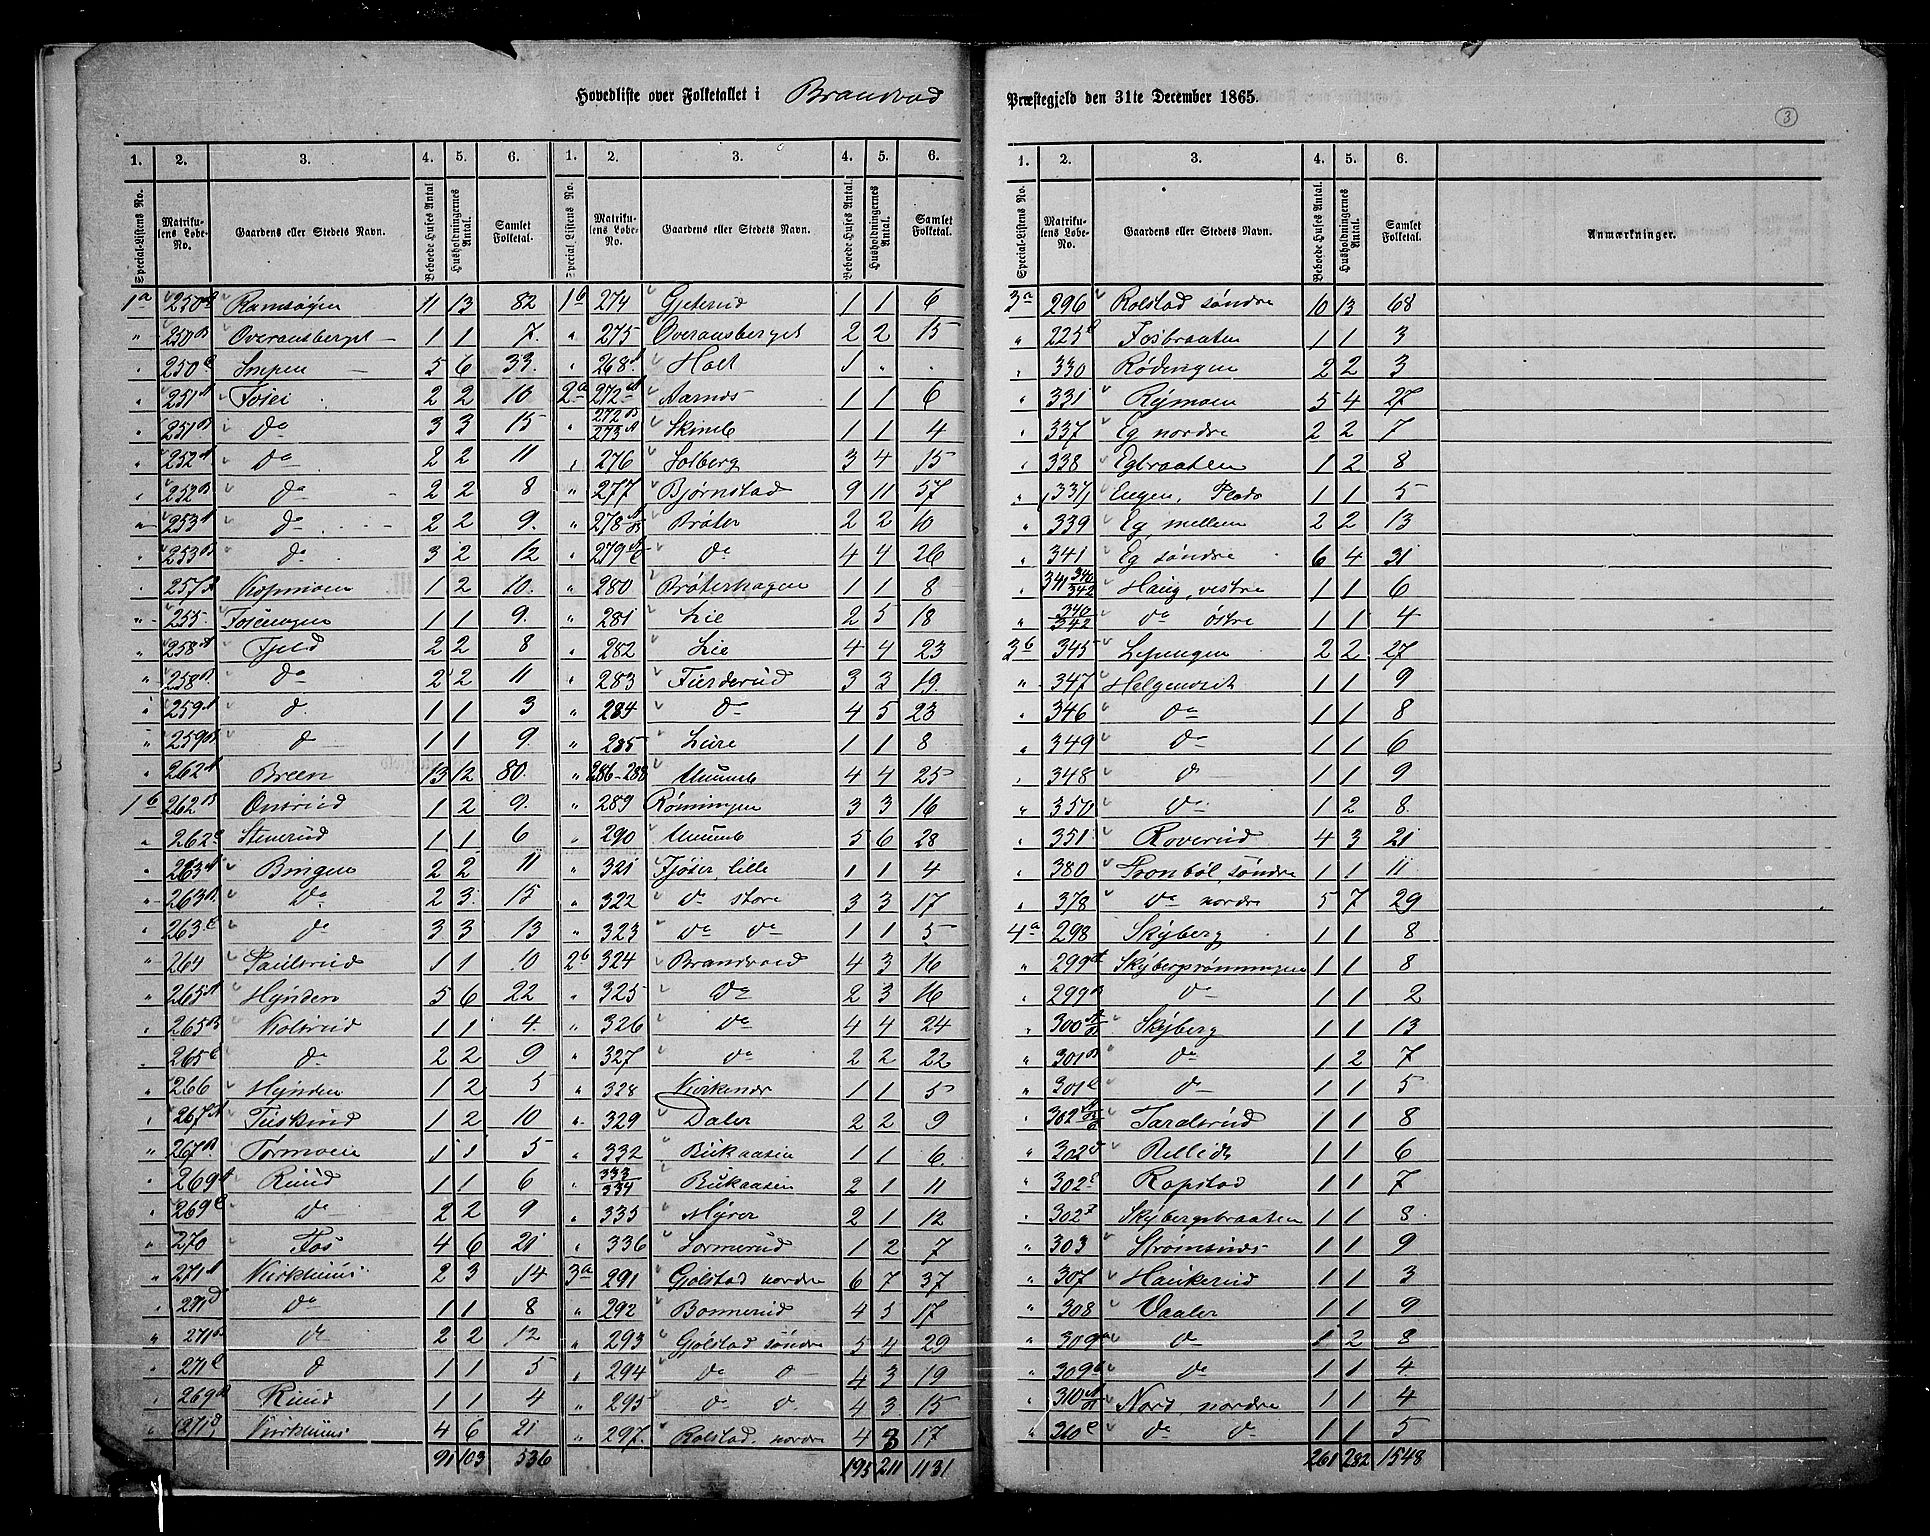 Hovedliste over Folketallet i Brandvol Præstegjeld den 31te December 1865.
3
1. 2. 3. 4. 5. 6. 1. 2. 3. 4. 5. 6.
Special-Listens No. Matrikulens Løbe-No. Gaardens eller Stedets Navn. Beboede Huses Antal Husholdningernes Antal. Samlet Folketal. Special Listens No. Matrikulens Løbe-No. Gaardens eller Stedets Navn. Beboede Huses Antal. Husholdningernes Antal. Samlet Folketal.
1a 250a Ramsøyen 11 13 82 1b 274 Gjeterud 1 1 6
" 250B Overausberget 1 1 7. " 275 Overausberget 2 2 15
" 250C Impen 5 6 33. " 268A Holt 1 " .
" 251A Fosei 2 2 10 2a 272A Aarnes 1 1 6
" 251B. do 3 3 15 " 272B 273A Skinnb 1 1 4
" 252A do 2 2 11 " 276 Solberg 3 4 15
" 252B do 2 2 8 " 277 Bjørnstad 9 11 57
" 253A do 2 2 9. " 278 Brøter 2 2 10
" 253B do 3 2 12 " 279 do 4 4 26
" 257 Kopmoen 1 2 10. " 280 Brøterhagen 1 1 8
" 255. Foseiengen 1 1 9. " 281 Lie 2 5 18
" 258A Fjeld 2 2 8 " 282 Lie 4 4 23
" 258B do 2 2 11 " 283 Fierderud 3 3 19.
" 259A do 1 1 3 " 284 do 4 5 23
" 259B do 1 1 9. " 285 Leire 1 1 8
" 262A Breen 13 12 80. " 286-288 Ununb 4 4 25
1b 262B Onsrud 1 2 9. " 289 Rønningen 3 3 16
" 262C Stenerud 1 1 6 " 290 Ununb 5 6 28
" 263A Bingen 2 2 11 " 321 Fjøser, lille 1 1 4
" 263B do 2 3. 15 " 322 do store 3 3 17
" 263C do 3 3 13 " 323 do do 1 1 5
" 264 Paulsrud 1 1 10 2b 324 Brandvold 4 3 16
" 265A Hynden 5 6 22 " 325 do 2 3 16
" 265B Kolsrud 1 1 4. " 326 do 4 4 24
" 265C do 2 2 9 " 327 do 2 2 22
" 266 Hynden 1 2 5 " 328 Kirkenær 1 1 5
" 267A Fuskerud 1 2 10 " 329 Daler 2 2 9
" 267B. Tormoen 1 1 5 " 332 Bukaasen 1 1 6.
" 269A Ruud 1 1 6 " 333 334 Bukaasen 2 1 11
" 269C do 2 2 9 " 335 Myrer 2 1 12
" 270 Fos 4 6 21 " 336 Lormerud 1 2 7
" 271A Kirkhuus 2 3 14 3a 291 Gjølstad nordre 6 7 37
" 271D do 1 1 8 " 292 Bonnerud 4 5 17
" 271B do 2 2 12 " 293 Gjølstad søndre 5 4 29
" 271C do 1 1 5 " 294 do do 4 3 19
" 269B Ruud 1 1 4 " 295 do do 4 3 15
" 271D Kirkhuus 4 6 21 " 297. Rolstad nordre 4 3 17
91 103 536 195 211 1131
1. 2. 3. 4. 5. 6.
Special-Listens No. Matrikulens Løbe-No. Gaardens eller Stedets Navn. Beboede Huses Antal. Husholdningernes Antal. Samlet Folketal. Anmærkninger.
3a 296 Rolstad søndre 10 13 68
" 225C Fosbraaten 1 1 3
" 330 Rødengen 2 2 3
" 331 Rymoen 5 4 27
" 337 Eg nordre 2 2 7
" 338 Egbraaten 1 2 8
" (337) Engen, Plads 1 1 5
" 339 Eg mellem 2 2 13
" 341 Eg søndre 6 4 31
" 341 340 342 Haug, vestre 1 1 6
" 340 342 do østre 1 1 4
3b 345 Lejengen 2 2 27
" 347 Helgemoset 1 1 9
" 346 do 1 1 8
" 349 do 1 1 6
" 348 do 1 1 9
" 350 do 1 2 8
" 351 Roverud 4 3 21
" 380 Tronbøl, søndre 1 1 11
" 378 do nordre 5 7 29
4a 298 Skyberg 1 1 8
" 299A Skybergsrønningen 1 1 8
" 299B do 1 1 2
" 300 Skyberg 1 1 13
" 301B do 1 2 7
" 301C do 1 1 5
" 302 Taralsrud 1 1 8
" 302D 1 1 6
" 302E Rapstad 1 1 7
" 302F Skybergsbraaten 1 1 8
" 303 Strømsnæs 1 1 9
" 307 Haukerud 1 1 3
" 308 Vaaler 1 1 9
" 309a do 1 2 8
" 309b do 1 1 4
" 310 Nort nordre 1 1 4
" 310C do do 1 1 5
261 282 1548